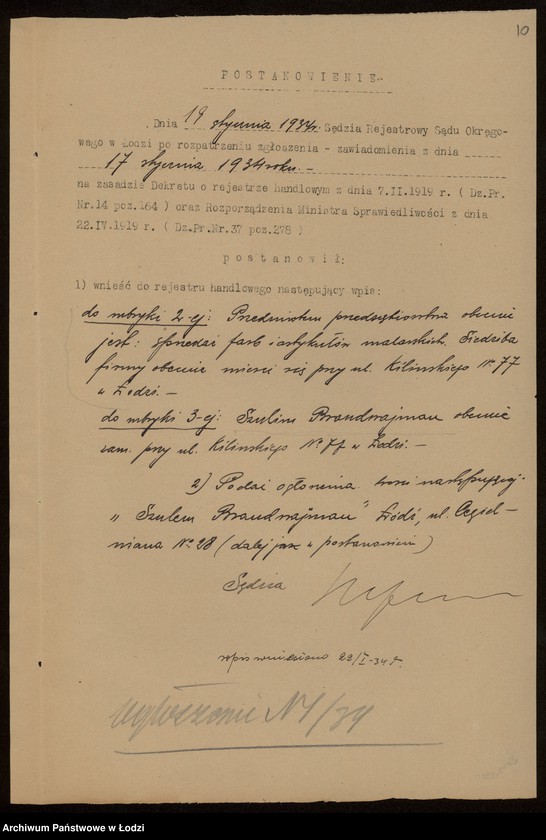 10
POSTANOWIENIE
Dnia 19 stycznia 1934r. Sędzia Rejestrowy Sądu Okręgo-
wego w Łodzi po rozpatrzeniu zgłoszenia - zawiadomienia z dnia
17 stycznia 1934 roku. -
na zasadzie Dekretu o rejestrze handlowym z dnia 7.II.1919 r. ( Dz.Pr.
Nr.14 poz.164 ) oraz Rozporządzenia Ministra Sprawiedliwości z dnia
22.IV.1919 r. ( Dz.Pr.Nr.37 poz.278 )
postanowił:
1) wnieść do rejestru handlowego następujący wpis:
do rubryki 2-ej: Przedmiotem przedsiębiorstwa obecnie
jest: sprzedaż farb i artykułów malarskich. Siedziba
firmy obecnie mieści się przy ul. Kilińskiego № 77
w Łodzi. -
do rubryki 3-ej: Szulem Brandwajnman obecnie
zam. przy ul. Kilińskiego № 77 w Łodzi. -
2) Podać ogłoszenia treści następującej:
„Szulem Brandwajnman" Łódź, ul. Cegiel-
niana № 28 (dalej jak w postanowieniu)
Sędzia
wpis wniesiono 23/I-34 r.
Ogłoszenie № 1/34
Archiwum Państwowe w Łodzi